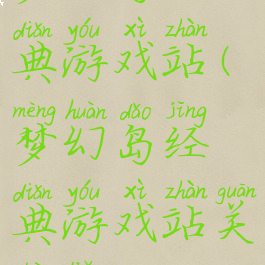 diǎn yóu xì zhàn
典游戏站(
mèng huàn dǎo jīng
梦幻岛经
diǎn yóu xì zhàn guān
典游戏站关